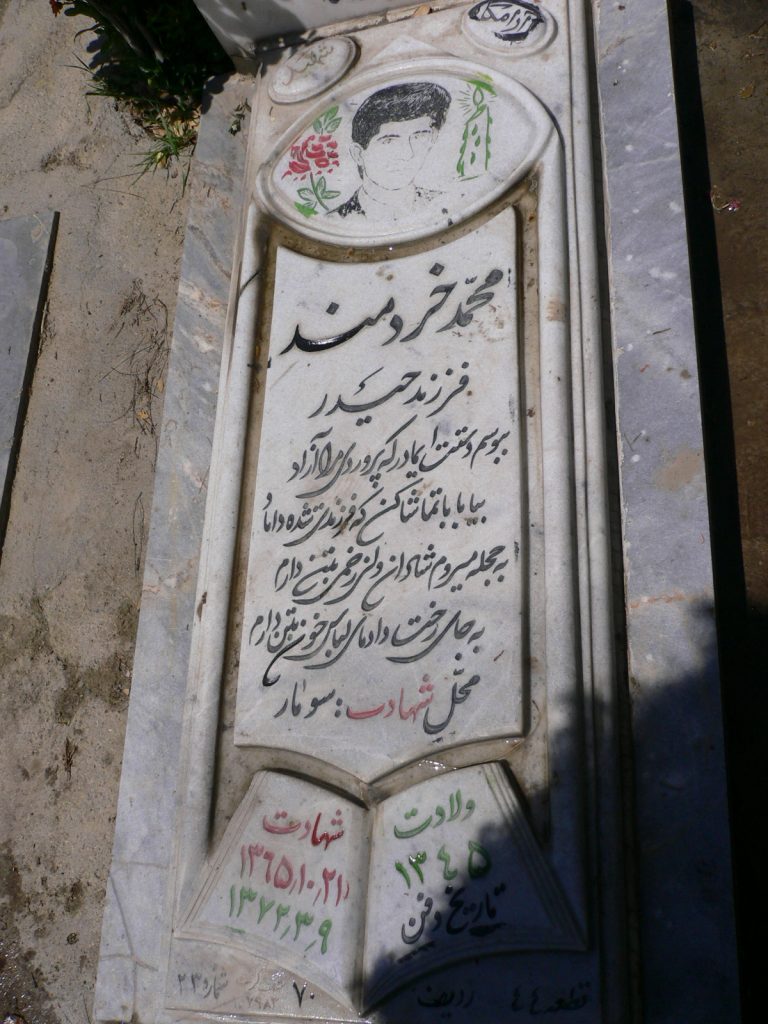 آرامگاه
شهید
محمّد خردمند
فرزند حیدر
ببوسم دستت ایمادر که پروردی مرا آزاد
بیا بابا تماشا کن که فرزندت شده داماد
به حجله میروم شادان ولی زخمی بتن دارم
به جای رخت دامادی لباس خون بتن دارم
محلّ شهادت : سومار
ولادت
۱۳۴۵
تاریخ دفن
شهادت
۱۳۶۵٫۱۰٫۲۱
۱۳۷۲٫۳٫۹
قطعه ۴۴ ردیف ۷۰ شماره ۲۳